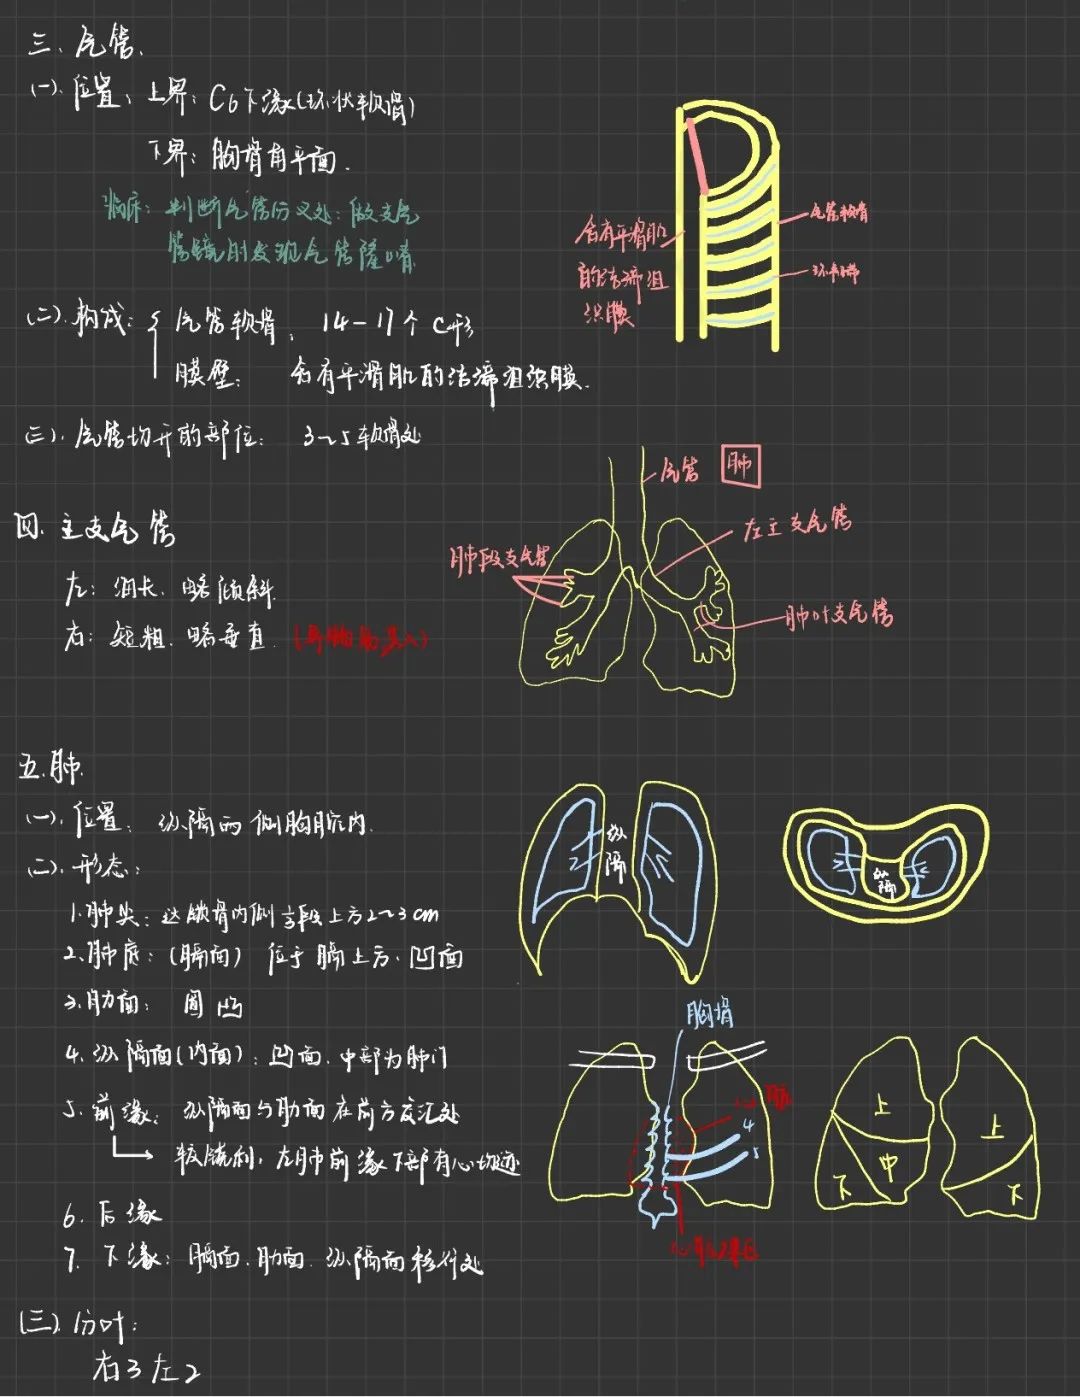 三. 气管.
(一). 位置: 上界: C6下缘(环状软骨)
下界: 胸骨角平面.
临床: 判断气管分叉处: 做支气
管镜时发现气管隆嵴
含有平滑肌
的结缔组
织膜
气管软骨
环韧带
(二). 构成: 气管软骨: 14-17个 C形
膜壁: 含有平滑肌的结缔组织膜.
(三). 气管切开的部位: 3~5软骨处
气管
肺
左主支气管
肺段支气管
肺叶支气管
四. 主支气管
左: 细长. 略倾斜.
右: 短粗. 略垂直.
五. 肺.
(一). 位置: 纵隔两侧胸腔内.
(二). 形态:
1. 肺尖: 达锁骨内侧1/3段上方2~3cm
2. 肺底: (膈面) 位于膈上方. 凹面
3. 肋面: 圆凸
4. 纵隔面(内面): 凹面. 中部为肺门
5. 前缘: 纵隔面与肋面在前方交汇处
较锐利, 左肺前缘下部有心切迹
6. 后缘
7. 下缘: 膈面. 肋面. 纵隔面移行处
纵
隔
纵
隔
胸骨
4
5
上
中
下
上
下
(三). 分叶:
右3左2